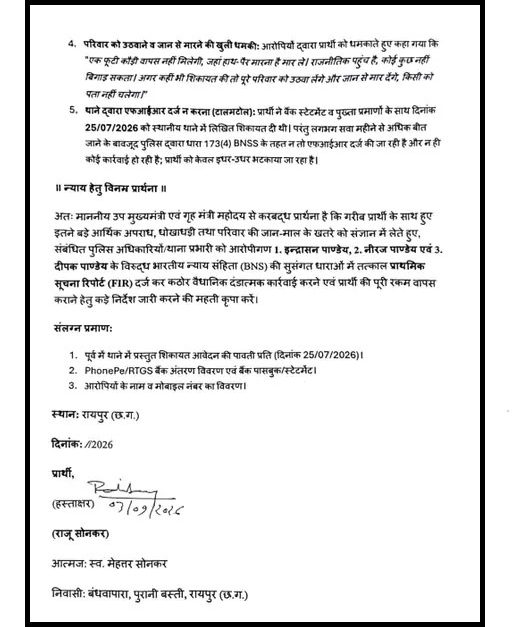 4. परिवार को उठवाने व जान से मारने की खुली धमकी: आरोपियों द्वारा प्रार्थी को धमकाते हुए कहा गया कि
"एक फूटी कौड़ी वापस नहीं मिलेगी, जहां हाथ-पैर मारना है मार ले। राजनीतिक पहुंच है, कोई कुछ नहीं
बिगाड़ सकता। अगर कहीं भी शिकायत की तो पूरे परिवार को उठवा लेंगे और जान से मार देंगे, किसी को
पता नहीं चलेगा।"
5. थाने द्वारा एफआईआर दर्ज न करना (टालमटोल): प्रार्थी ने बैंक स्टेटमेंट व पुख्ता प्रमाणों के साथ दिनांक
25/07/2026 को स्थानीय थाने में लिखित शिकायत दी थी। परंतु लगभग सवा महीने से अधिक बीत
जाने के बावजूद पुलिस द्वारा धारा 173(4) BNSS के तहत न तो एफआईआर दर्ज की जा रही है और न ही
कोई कार्रवाई हो रही है; प्रार्थी को केवल इधर-उधर भटकाया जा रहा है।
॥ न्याय हेतु विनम्र प्रार्थना ॥
अतः माननीय उप मुख्यमंत्री एवं गृह मंत्री महोदय से करबद्ध प्रार्थना है कि गरीब प्रार्थी के साथ हुए
इतने बड़े आर्थिक अपराध, धोखाधड़ी तथा परिवार की जान-माल के खतरे को संज्ञान में लेते हुए,
संबंधित पुलिस अधिकारियों/थाना प्रभारी को आरोपीगण 1. इन्द्रासन पाण्डेय, 2. नीरज पाण्डेय एवं 3.
दीपक पाण्डेय के विरुद्ध भारतीय न्याय संहिता (BNS) की सुसंगत धाराओं में तत्काल प्राथमिक
सूचना रिपोर्ट (FIR) दर्ज कर कठोर वैधानिक दंडात्मक कार्रवाई करने एवं प्रार्थी की पूरी रकम वापस
कराने हेतु कड़े निर्देश जारी करने की महती कृपा करें।
संलग्न प्रमाण:
1. पूर्व में थाने में प्रस्तुत शिकायत आवेदन की पावती प्रति (दिनांक 25/07/2026)।
2. PhonePe/RTGS बैंक अंतरण विवरण एवं बैंक पासबुक/स्टेटमेंट।
3. आरोपियों के नाम व मोबाइल नंबर का विवरण।
स्थान: रायपुर (छ.ग.)
दिनांक: //2026
प्रार्थी,
(हस्ताक्षर) 07/09/2026
(राजू सोनकर)
आत्मज: स्व. मेहत्तर सोनकर
निवासी: बंधवापारा, पुरानी बस्ती, रायपुर (छ.ग.)